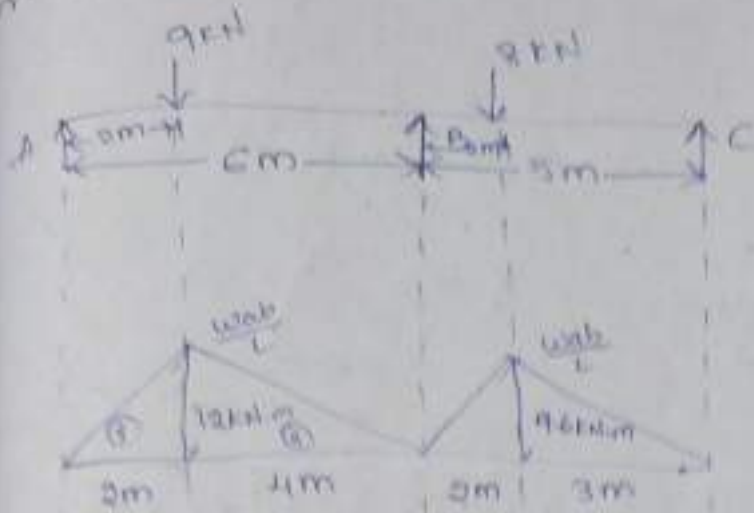 9KN 8KN
A 2m 6m B 2m 5m C
wab/L wab/L
① 12KN.m ② 9.6KN.m
2m 4m 2m 3m